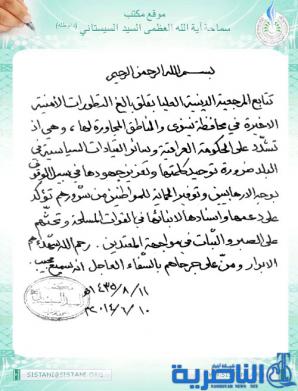 موقع مكتب
سماحة آية الله العظمى السيد السيستاني (دام ظله)
بسم الله الرحمن الرحيم
تتابع المرجعية الدينية العليا بقلق بالغ التطورات الأمنية
الاخيرة في محافظة نينوى والمناطق المجاورة لها، وهي اذ
تشدّد على الحكومة العراقية وسائر القيادات السياسية في
البلد ضرورة توحيد كلمتها وتعزيز جهودها في سبيل الوقوف
بوجه الارهابيين وتوفير الحماية للمواطنين من شرورهم تؤكد
على دعمها واسنادها لأبنائها في القوات المسلحة وتحثهم
على الصبر والثبات في مواجهة المعتدين. رحم الله شهداءهم
الابرار ومنّ على جرحاهم بالشفاء العاجل انه سميع مجيب.
١١/٨/١٤٣٥هـ
١٠/٦/٢٠١٤م
SISTANI@SISTANI.ORG
الناصرية